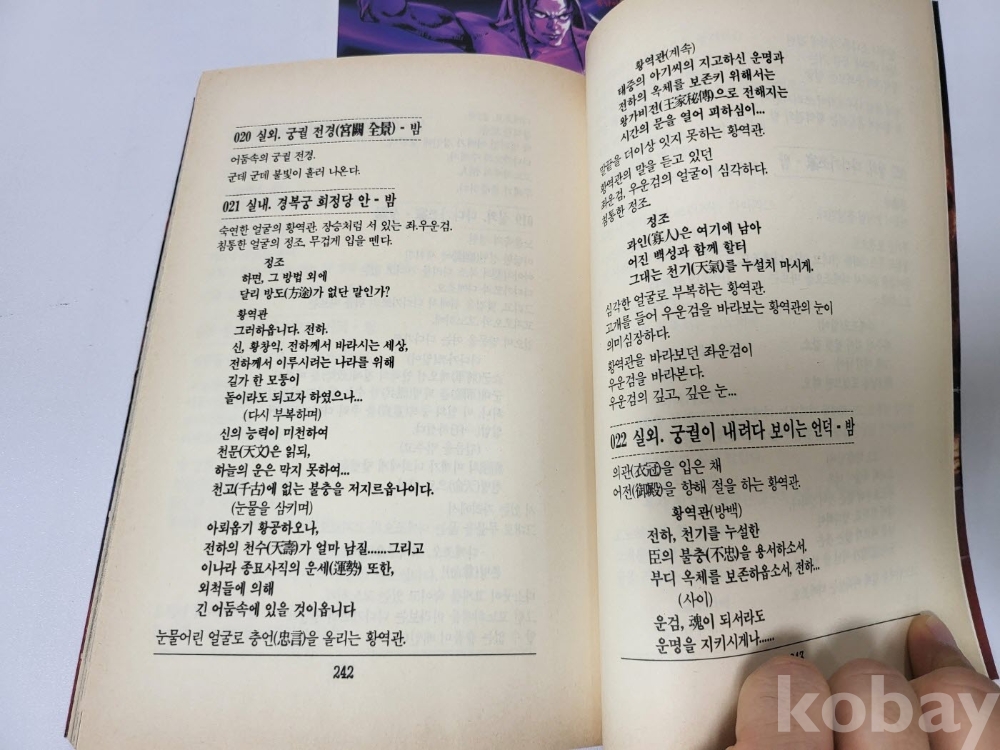 020 실외. 궁궐 전경(宮闕 全景) - 밤
어둠속의 궁궐 전경.
군데 군데 불빛이 흘러 나온다.
021 실내. 경복궁 희정당 안 - 밤
숙연한 얼굴의 황역관. 장승처럼 서 있는 좌.우운검.
침통한 얼굴의 정조. 무겁게 입을 뗀다.
정조
하면, 그 방법 외에
달리 방도(方途)가 없단 말인가?
황역관
그러하옵니다. 전하.
신, 황창익. 전하께서 바라시는 세상,
전하께서 이루시려는 나라를 위해
길가 한 모퉁이
돌이라도 되고자 하였으나...
(다시 부복하며)
신의 능력이 미천하여
천문(天文)은 읽되,
하늘의 운은 막지 못하여...
천고(千古)에 없는 불충을 저지르옵나이다.
(눈물을 삼키며)
아뢰옵기 황공하오나,
전하의 천수(天壽)가 얼마 남질......그리고
이나라 종묘사직의 운세(運勢) 또한,
외척들에 의해
긴 어둠속에 있을 것이옵니다
눈물어린 얼굴로 충언(忠言)을 올리는 황역관.
242
황역관(계속)
태중의 아기씨의 지고하신 운명과
전하의 옥체를 보존키 위해서는
왕가비전(王家秘傳)으로 전해지는
시간의 문을 열어 피하심이...
말끝을 더이상 잇지 못하는 황역관.
황역관의 말을 듣고 있던
좌운검, 우운검의 얼굴이 심각하다.
침통한 정조.
정조
과인(寡人)은 여기에 남아
어진 백성과 함께 할터
그대는 천기(天氣)를 누설치 마시게.
심각한 얼굴로 부복하는 황역관.
고개를 들어 우운검을 바라보는 황역관의 눈이
의미심장하다.
황역관을 바라보던 좌운검이
우운검을 바라본다.
우운검의 깊고, 깊은 눈...
022 실외. 궁궐이 내려다 보이는 언덕 - 밤
의관(衣冠)을 입은 채
어전(御殿)을 향해 절을 하는 황역관.
황역관(방백)
전하, 천기를 누설한
臣의 불충(不忠)을 용서하소서.
부디 옥체를 보존하옵소서, 전하...
(사이)
운검, 魂이 되서라도
운명을 지키시게나......
243
kobay